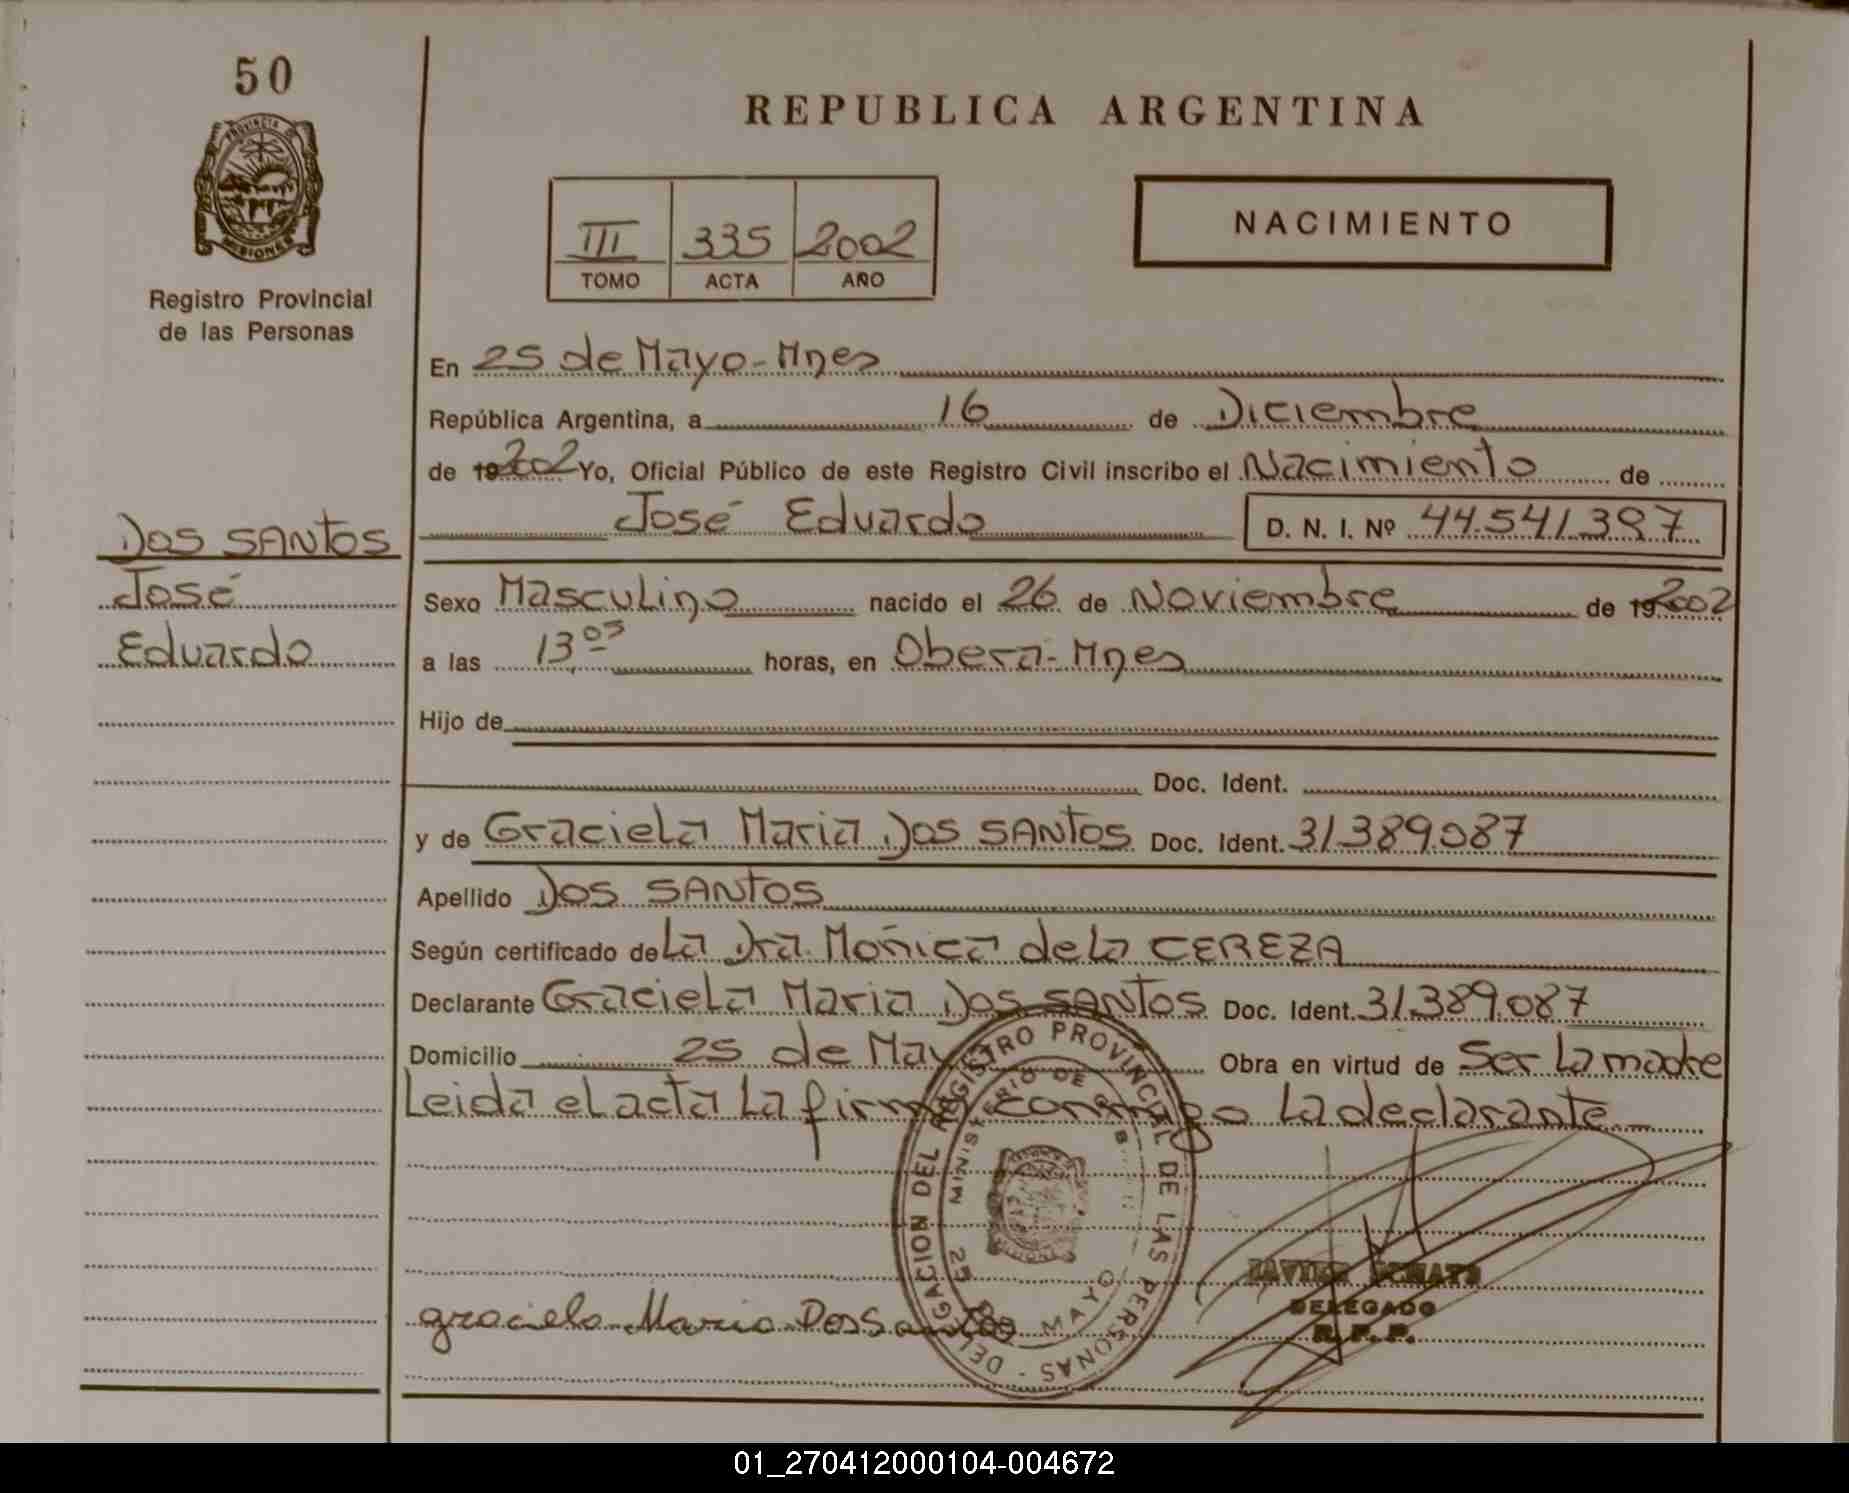 50
REPUBLICA ARGENTINA
PROVINCIA DE
MISIONES
Registro Provincial
de las Personas
III 335 2002
TOMO ACTA AÑO
NACIMIENTO
En 25 de Mayo-Mnes
República Argentina, a 16 de Diciembre
de 19 2002 Yo, Oficial Público de este Registro Civil inscribo el Nacimiento de
José Eduardo D. N. I. Nº 44.541.397
Dos SANTOS
José
Eduardo
Sexo Masculino nacido el 26 de Noviembre de 19 2002
a las 13 05 horas, en Oberá-Mnes
Hijo de
Doc. Ident.
y de Graciela Maria Dos SANTOS Doc. Ident. 31.389.087
Apellido Dos SANTOS
Según certificado de La Dra. Moñica de la CEREZA
Declarante Graciela Maria Dos SANTOS Doc. Ident. 31.389.087
Domicilio 25 de May Obra en virtud de Ser La madre
Leida el acta La firma conmigo La declarante.
DELEGACION DEL REGISTRO PROVINCIAL DE LAS PERSONAS -
MINISTERIO DE
25 MAYO
MISIONES
graciela Maria Dos Santos
JAVIER
DELEGADO
R. P. P.
01_270412000104-004672